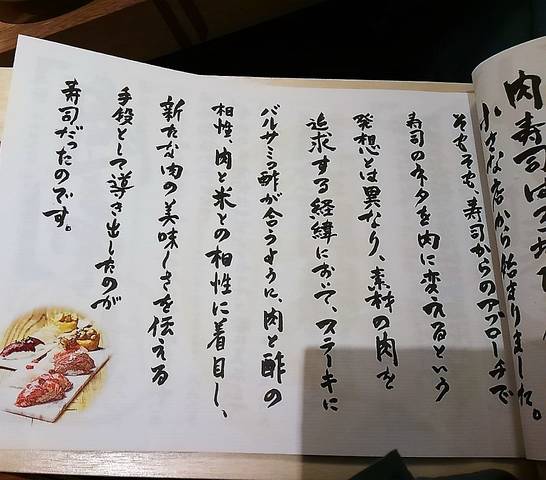 肉寿司は
小さな店から始まりました。
そもそも寿司からのアプローチで
寿司のネタを肉に変えるという
発想とは異なり、素材の肉を
追求する経緯において、ステーキに
バルサミコ酢が合うように、肉と酢の
相性、肉と米との相性に着目し、
新たな肉の美味しさを伝える
手段として導き出したのが
寿司だったのです。